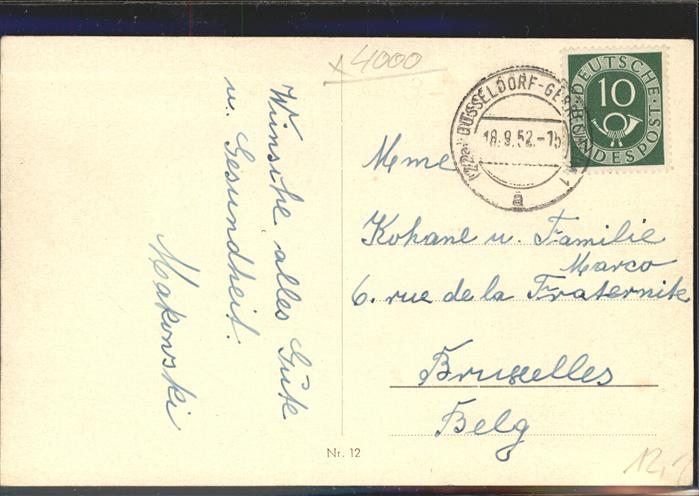 x 4000
Wünsche alles Gute
u. Gesundheit.
Makowski
DEUTSCHE BUNDESPOST
10
DÜSSELDORF-GERRESHEIM 1
18.9.52.-15
a
Mme
Kohane u. Familie
Marco
6. rue de la Fraternite
Bruxelles
Belg
Nr. 12